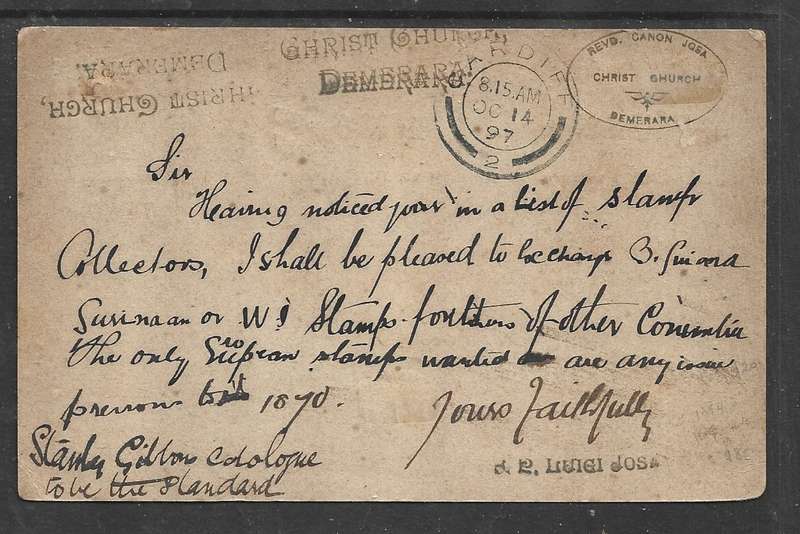 CHRIST CHURCH,
DEMERARA.
CHRIST CHURCH,
DEMERARA.
CARDIFF
8.15.AM
OC 14
97
2
REVD. CANON JOSA
CHRIST CHURCH
DEMERARA
Sir
Having noticed your in a list of stamp
Collectors, I shall be pleased to exchange B. Guiana
Surinaam or W I Stamps for others of other Countries
the only European stamps wanted are any issue
previous to 1870.
Yours Faithfully
F. P. LUIGI JOSA
Stanley Gibbons Catologue
to be the Standard